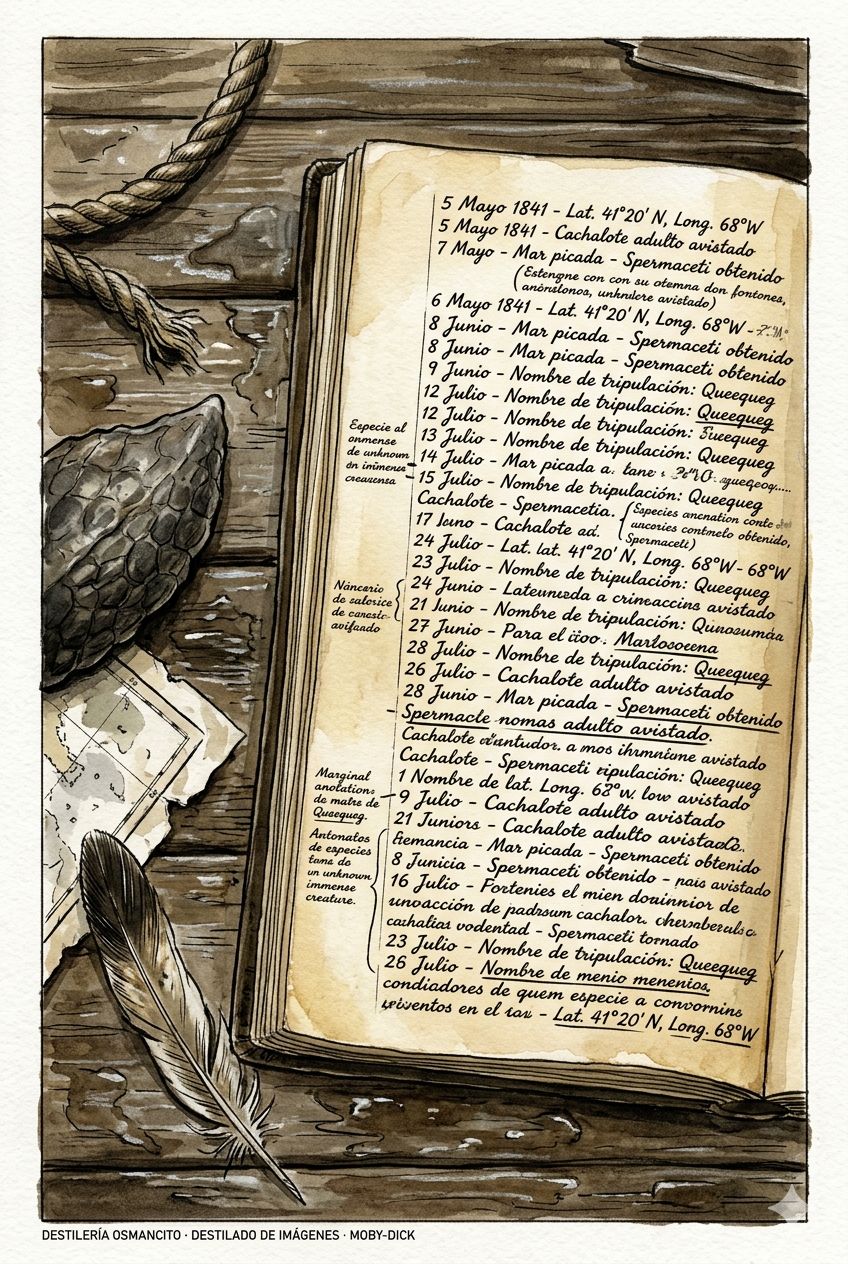 5 Mayo 1841 - Lat. 41°20' N, Long. 68°W
5 Mayo 1841 - Cachalote adulto avistado
7 Mayo - Mar picada - Spermaceti obtenido
(Estengne con con su otemna don fontones,
unknulere avistado)
6 Mayo 1841 - Lat. 41°20' N, Long. 68°W -
8 Junio - Mar picada - Spermaceti obtenido
8 Junio - Mar picada - Spermaceti obtenido
9 Junio - Nombre de tripulación: Queequeg
12 Julio - Nombre de tripulación: Queequeg
12 Julio - Nombre de tripulación:
13 Julio - Nombre de tripulación: Queequeg
14 Julio - Mar picada a.
15 Julio - Nombre de tripulación: Queequeg
Cachalote - Spermacetia.
(Especies
obtenido,
Spermaceti)
17 - Cachalote ad.
24 Julio - Lat. lat. 41°20' N, Long. 68°W - 68°W
23 Julio - Nombre de tripulación: Queequeg
24 Junio - a crimeaccins avistado
21 Iunio - Nombre de tripulación:
27 Junio - Para el Marlosocena
28 Julio - Nombre de tripulación: Queequeg
26 Julio - Cachalote adulto avistado
28 Junio - Mar picada - Spermaceti obtenido
Spermacle nomas adulto avistado.
Cachalote a mos avistado
Cachalote - Spermaceti ripulación: Queequeg
1 Nombre de lat. Long. 68°W. low avistado
9 Julio - Cachalote adulto avistado
21 Juniors - Cachalote adulto
- Mar picada - Spermaceti obtenido
8 Junicia - Spermaceti obtenido - pais avistado
16 Julio - Fortenies el mien douinnior de
unvoacción de padssum cachalor.
cachalias vodentad - Spermaceti tornado
23 Julio - Nombre de tripulación: Queequeg
26 Julio - Nombre de menio menenios.
condiadores de quem especie a convornins
en el - Lat. 41°20' N, Long. 68°W
Especie al
onmense
de unknown
en inimense
creavensa
Náncario
de salorice
de
avifaado
Marginal
anotations
de matre de
Queequeg.
Antonatos
de especies
tama de
un unknown
immense
creature.
DESTILERÍA OSMANCITO · DESTILADO DE IMÁGENES · MOBY-DICK